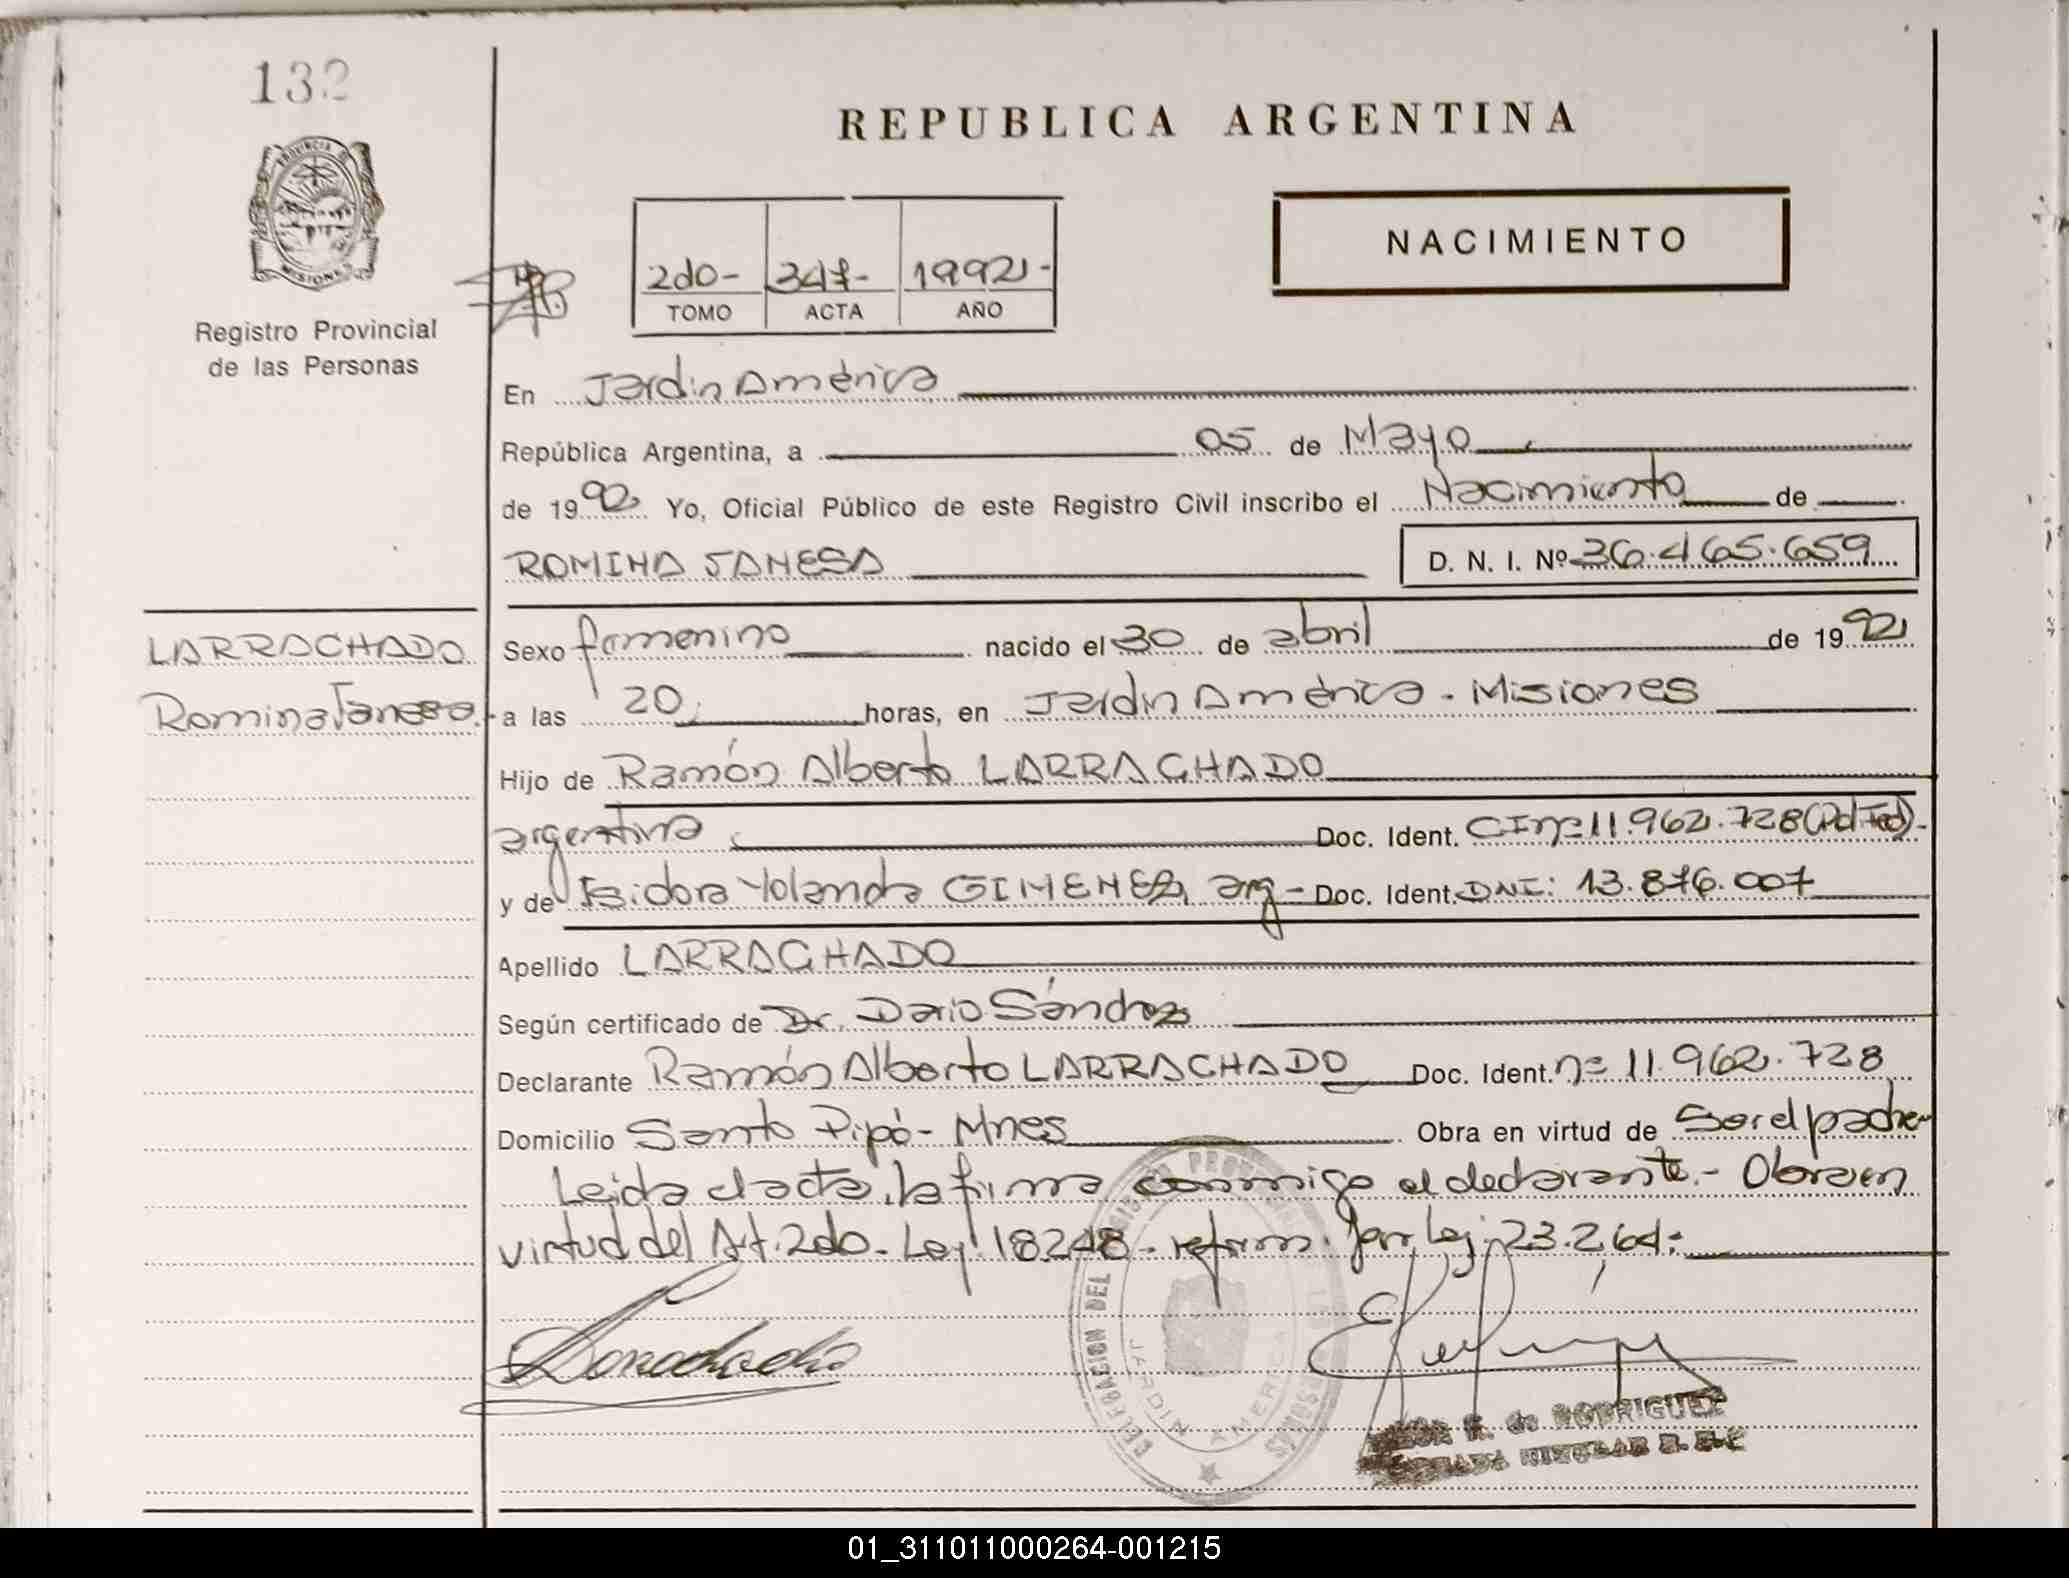 132
REPUBLICA ARGENTINA
PROVINCIA DE
MISIONES
NACIMIENTO
2do- 347- 1992-
TOMO ACTA AÑO
Registro Provincial
de las Personas
En Jardin América
República Argentina, a 05 de Mayo
de 1992 Yo, Oficial Público de este Registro Civil inscribo el Nacimiento de
ROMINA JANESA D. N. I. Nº 36.465.659
LARRACHADO
Romina Janesa.
Sexo femenino nacido el 30 de abril de 1992
a las 20 horas, en Jardin América - Misiones
Hijo de Ramón Alberto LARRACHADO
argentina Doc. Ident. CI nº 11.962.728 (Pol Fed).
y de Isidora Yolanda GIMENEZ, arg - Doc. Ident. DNI: 13.876.007
Apellido LARRACHADO
Según certificado de Dr. Dario Sánchez
Declarante Ramón Alberto LARRACHADO Doc. Ident. nº 11.962.728
Domicilio Santo Pipó - Mnes Obra en virtud de Ser el padre
Leida el acta, la firma conmigo el declarante.- Obra en
virtud del Art. 2do. Ley 18248 - reform. por Ley 23.264.-
DELEGACION DEL REGISTRO PROVINCIAL DE LAS PERSONAS
JARDIN AMERICA
de RODRIGUEZ
01_311011000264-001215